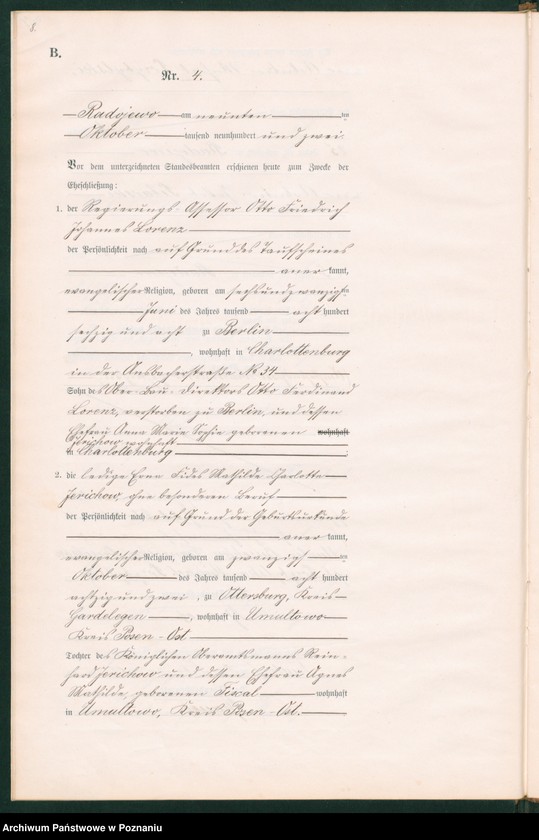 8.
B.
Nr. 4.
Radojewo am neunten ten
Oktober tausend neunhundert und zwei
Vor dem unterzeichneten Standesbeamten erschienen heute zum Zwecke der
Eheschließung:
1. der Regierungs-Assessor Otto Friedrich
Johannes Lorenz
der Persönlichkeit nach auf Grund des Taufscheines
aner kannt,
evangelischer Religion, geboren am sechsundzwanzigsten
Juni des Jahres tausend acht hundert
sechzig und acht zu Berlin
, wohnhaft in Charlottenburg
in der Ansbacherstraße No 54
Sohn des Ober-Bau-Direktors Otto Ferdinand
Lorenz, verstorben zu Berlin, und dessen
Ehefrau Anna Marie Sophie geborenen wohnhaft
Jerichow wohnhaft
in Charlottenburg
2. die ledige Erna Fides Mathilde Charlotte
Jerichow, ohne besonderen Beruf
der Persönlichkeit nach auf Grund der Geburtsurkunde
aner kannt,
evangelischer Religion, geboren am zwanzigsten
Oktober des Jahres tausend acht hundert
achtzig und zwei, zu Ottersburg, Kreis
Gardelegen, wohnhaft in Umultowo
Kreis Posen-Ost
Tochter des Königlichen Oberamtmanns Rein-
hard Jerichow und dessen Ehefrau Agnes
Mathilde geborenen Fiscal wohnhaft
in Umultowo, Kreis Posen-Ost.
Archiwum Państwowe w Poznaniu